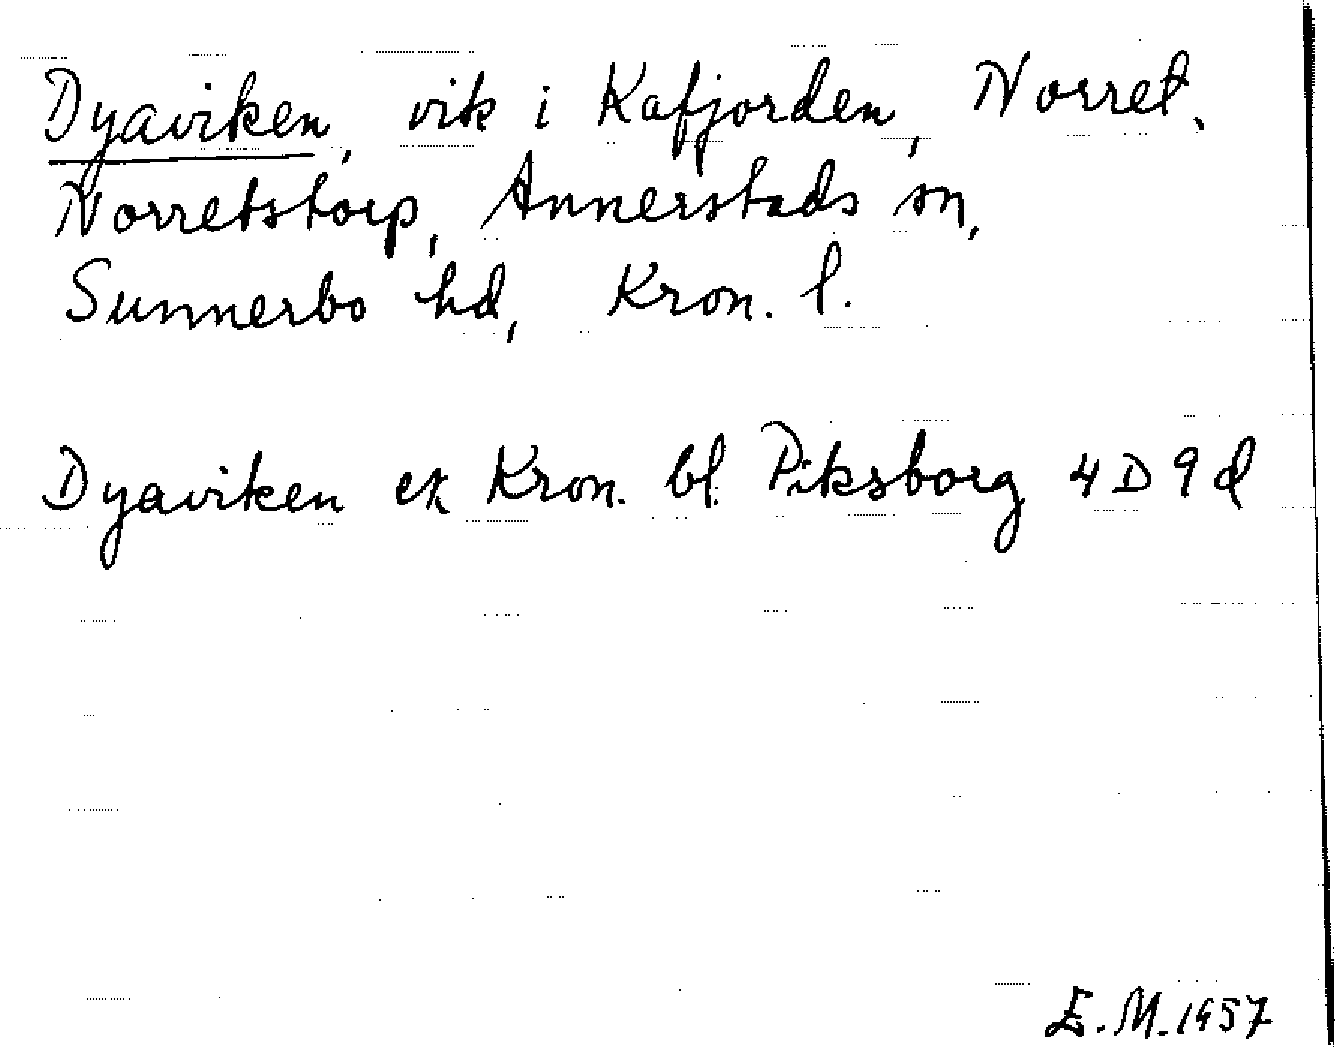 Dyaviken, vik i Kafjorden, Norret,
Norretstorp, Annerstads sn,
Sunnerbo hd, Kron. l.
Dyaviken ek Kron. bl. Piksborg 4D9d
E.M. 1957